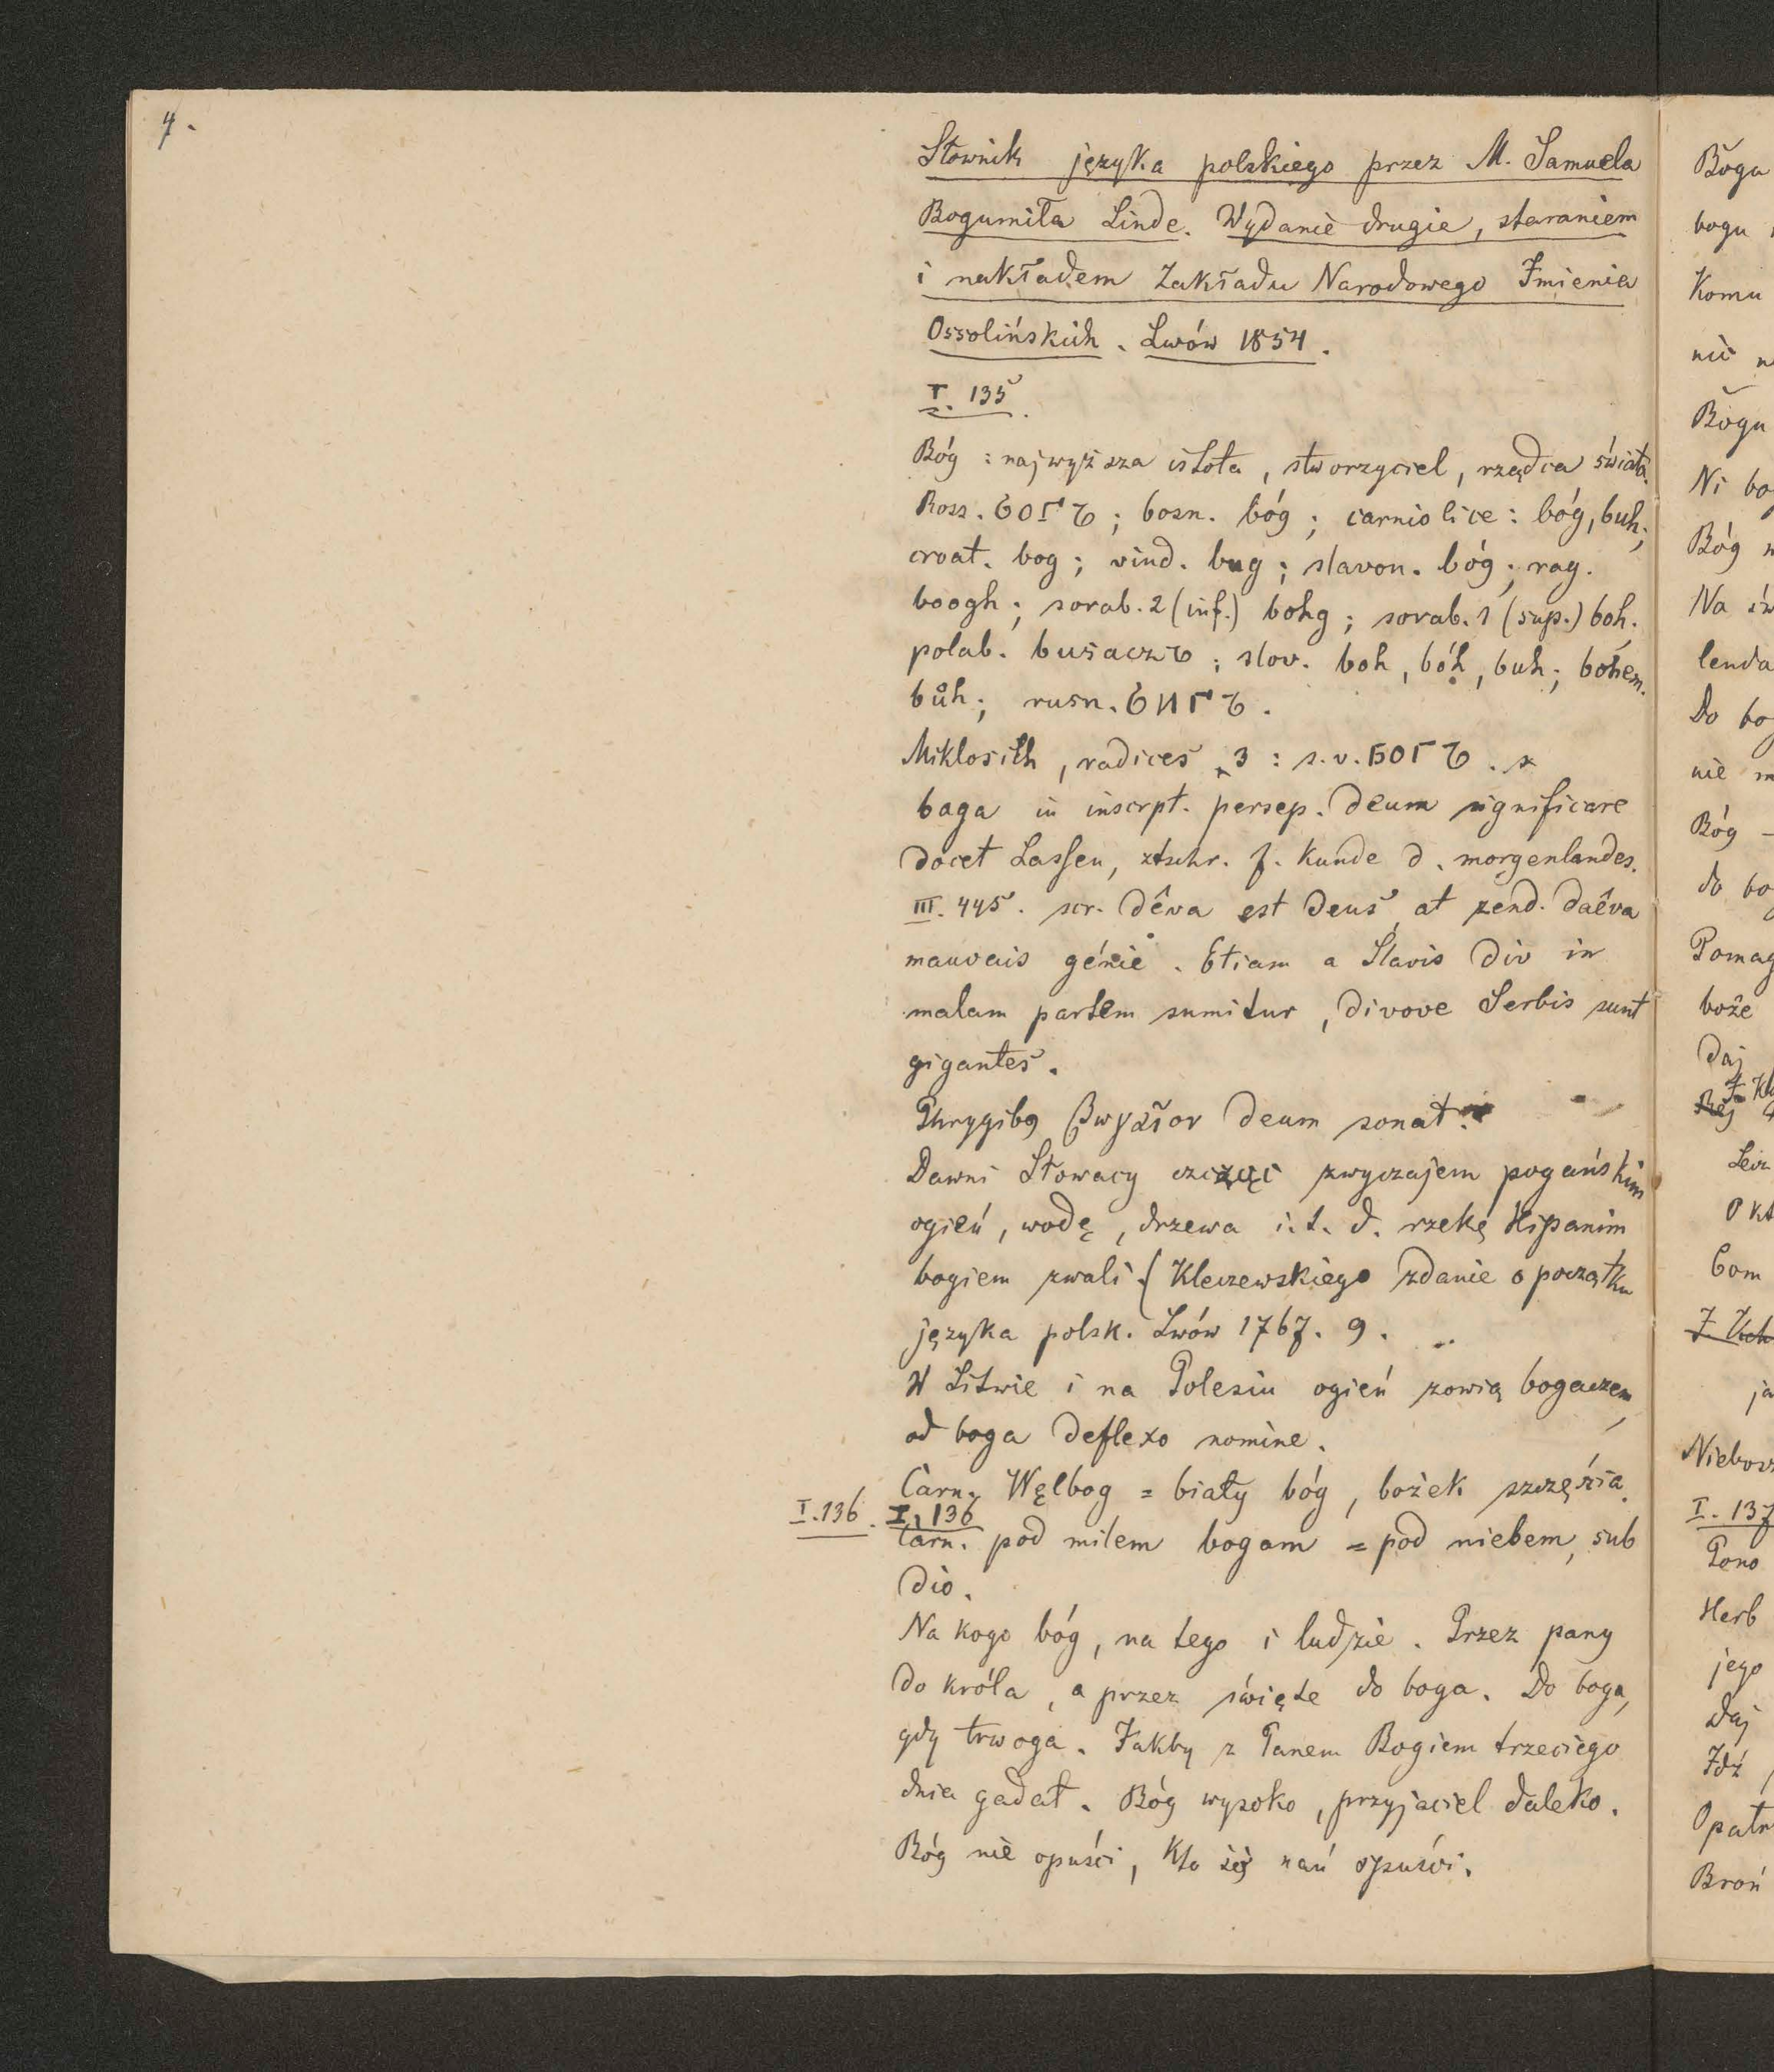 4.
Słownik języka polskiego przez M. Samuela
Bogumiła Linde. Wydanie drugie, staraniem
i nakładem Zakładu Narodowego Imienia
Ossolińskich. Lwów 1854.
I. 135.
Bóg : najwyższa istota, stworzyciel, rządca świata.
Ross. богъ; bosn. bóg; carniolice: bóg, buh;
croat. bog; vind. bug; slavon. bóg; rag.
boogh; sorab. 2 (inf.) bohg; sorab. 1 (sup.) boh.
polab. busaczъ; slov. boh, bóh, buh; bohem.
bůh; rusn. бигъ.
Miklosich, radices 3 : s.v. богъ.
baga in inscrpt. persep. deum significare
docet Lassen, ztschr. f. kunde d. morgenlandes.
III. 445. scr. dêva est deus, at zend. daêva
mauvais génie. Etiam a Slavis div in
malam partem sumitur, divove Serbis sunt
gigantes.
Phrygibq βωγαῖον deum sonat.
Dawni Słowacy czcząc zwyczajem pogańskim
ogień, wodę, drzewa i.t.d. rzekę Hipanim
bogiem zwali. (Kleczewskiego zdanie o początku
języka polsk. Lwów 1767. 9.
W Litwie i na Polesiu ogień zowią bogaczem,
od boga deflexo nomine.
Carn. Węlbog = biały bóg, bożek szczęścia.
I. 136. I. 136
Carn. pod milem bogam = pod niebem, sub
dio.
Na kogo bóg, na tego i ludzie. Przez pany
do króla, a przez święte do boga. Do boga,
gdy trwoga. Jakby z Panem Bogiem trzeciego
dnia gadał. Bóg wysoko, przyjaciel daleko.
Bóg nie opuści, kto się nań spuści.
Bogu
bogu
Komu
nic
Bogu
Ni
Bóg
Na
lenda
Do
nie
Bóg –
do
Pomag
boże
Daj
Niebosz
I. 137
Pono
Herb
jego
Daj
Idź
Opatr
Broń